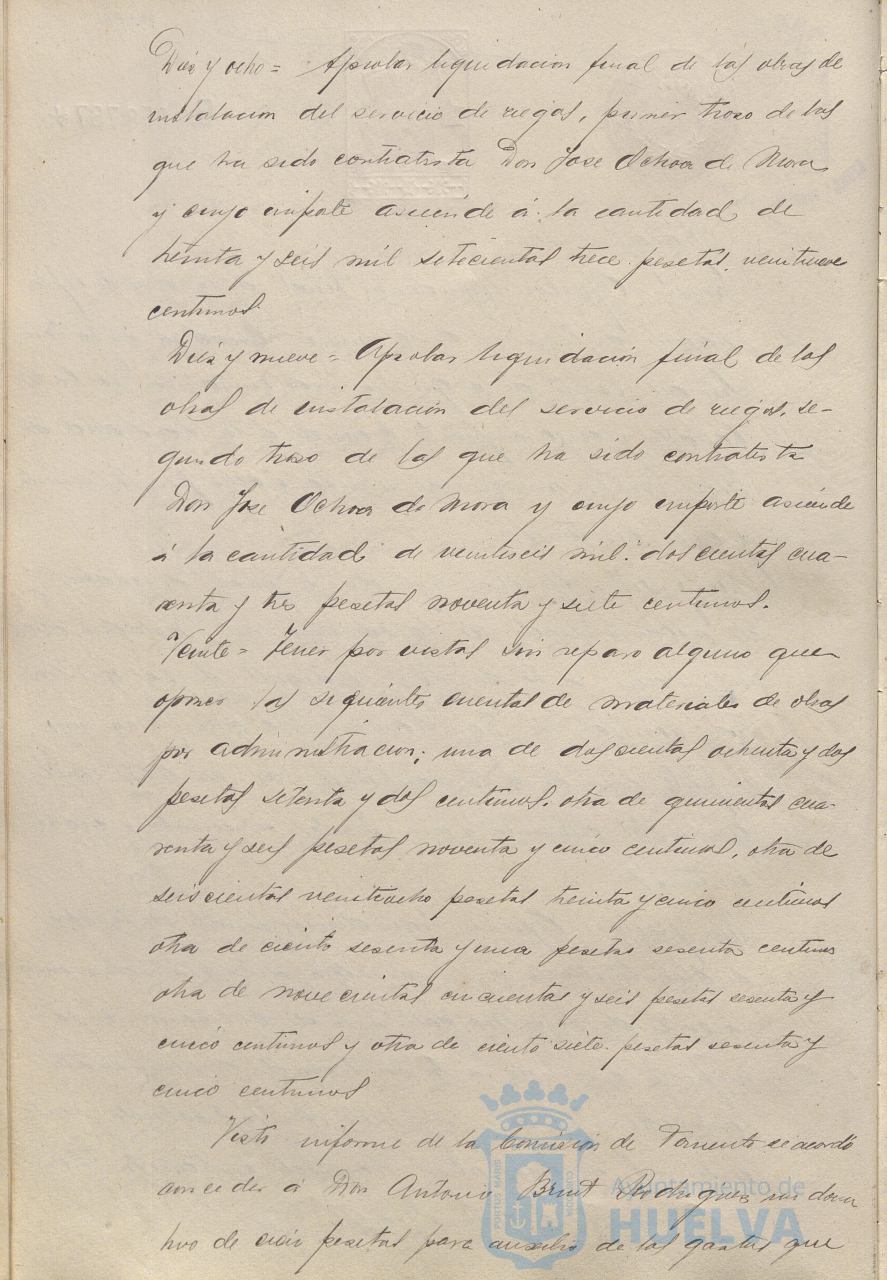 Diez y ocho = Aprobar liquidacion final de las obras de
instalacion del servicio de riegos, primer trozo de las
que ha sido contratista Don Jose Ochoa de Mora
y cuyo importe asciende á la cantidad de
treinta y seis mil setecientas trece pesetas, veintinueve
centimos
Diez y nueve = Aprobar liquidación final de las
obras de instalación del servicio de riegos, se-
gundo trozo de las que ha sido contratista
Don Jose Ochoa de Mora y cuyo importe asciende
á la cantidad de veintiseis mil doscientas cua-
renta y tres pesetas noventa y siete centimos.
Veinte = Tener por vistas sin reparo alguno que
oponer las siguientes cuentas de materiales de obras
por administracion; una de doscientas ochenta y dos
pesetas setenta y dos centimos. otra de quinientas cua-
renta y seis pesetas noventa y cinco centimos, otra de
seiscientas veintiocho pesetas treinta y cinco centimos
otra de ciento sesenta y una pesetas sesenta centimos
otra de novecientas cincuentas y seis pesetas sesenta y
cinco centimos y otra de ciento siete pesetas sesenta y
cinco centimos
Visto informe de la Comision de Fomento se acordó
conceder á Don Antonio Brut Rodriguez un dona
tivo de cien pesetas para auxilio de los gastos que
PORTUS MARIS
Ayuntamiento de
HUELVA